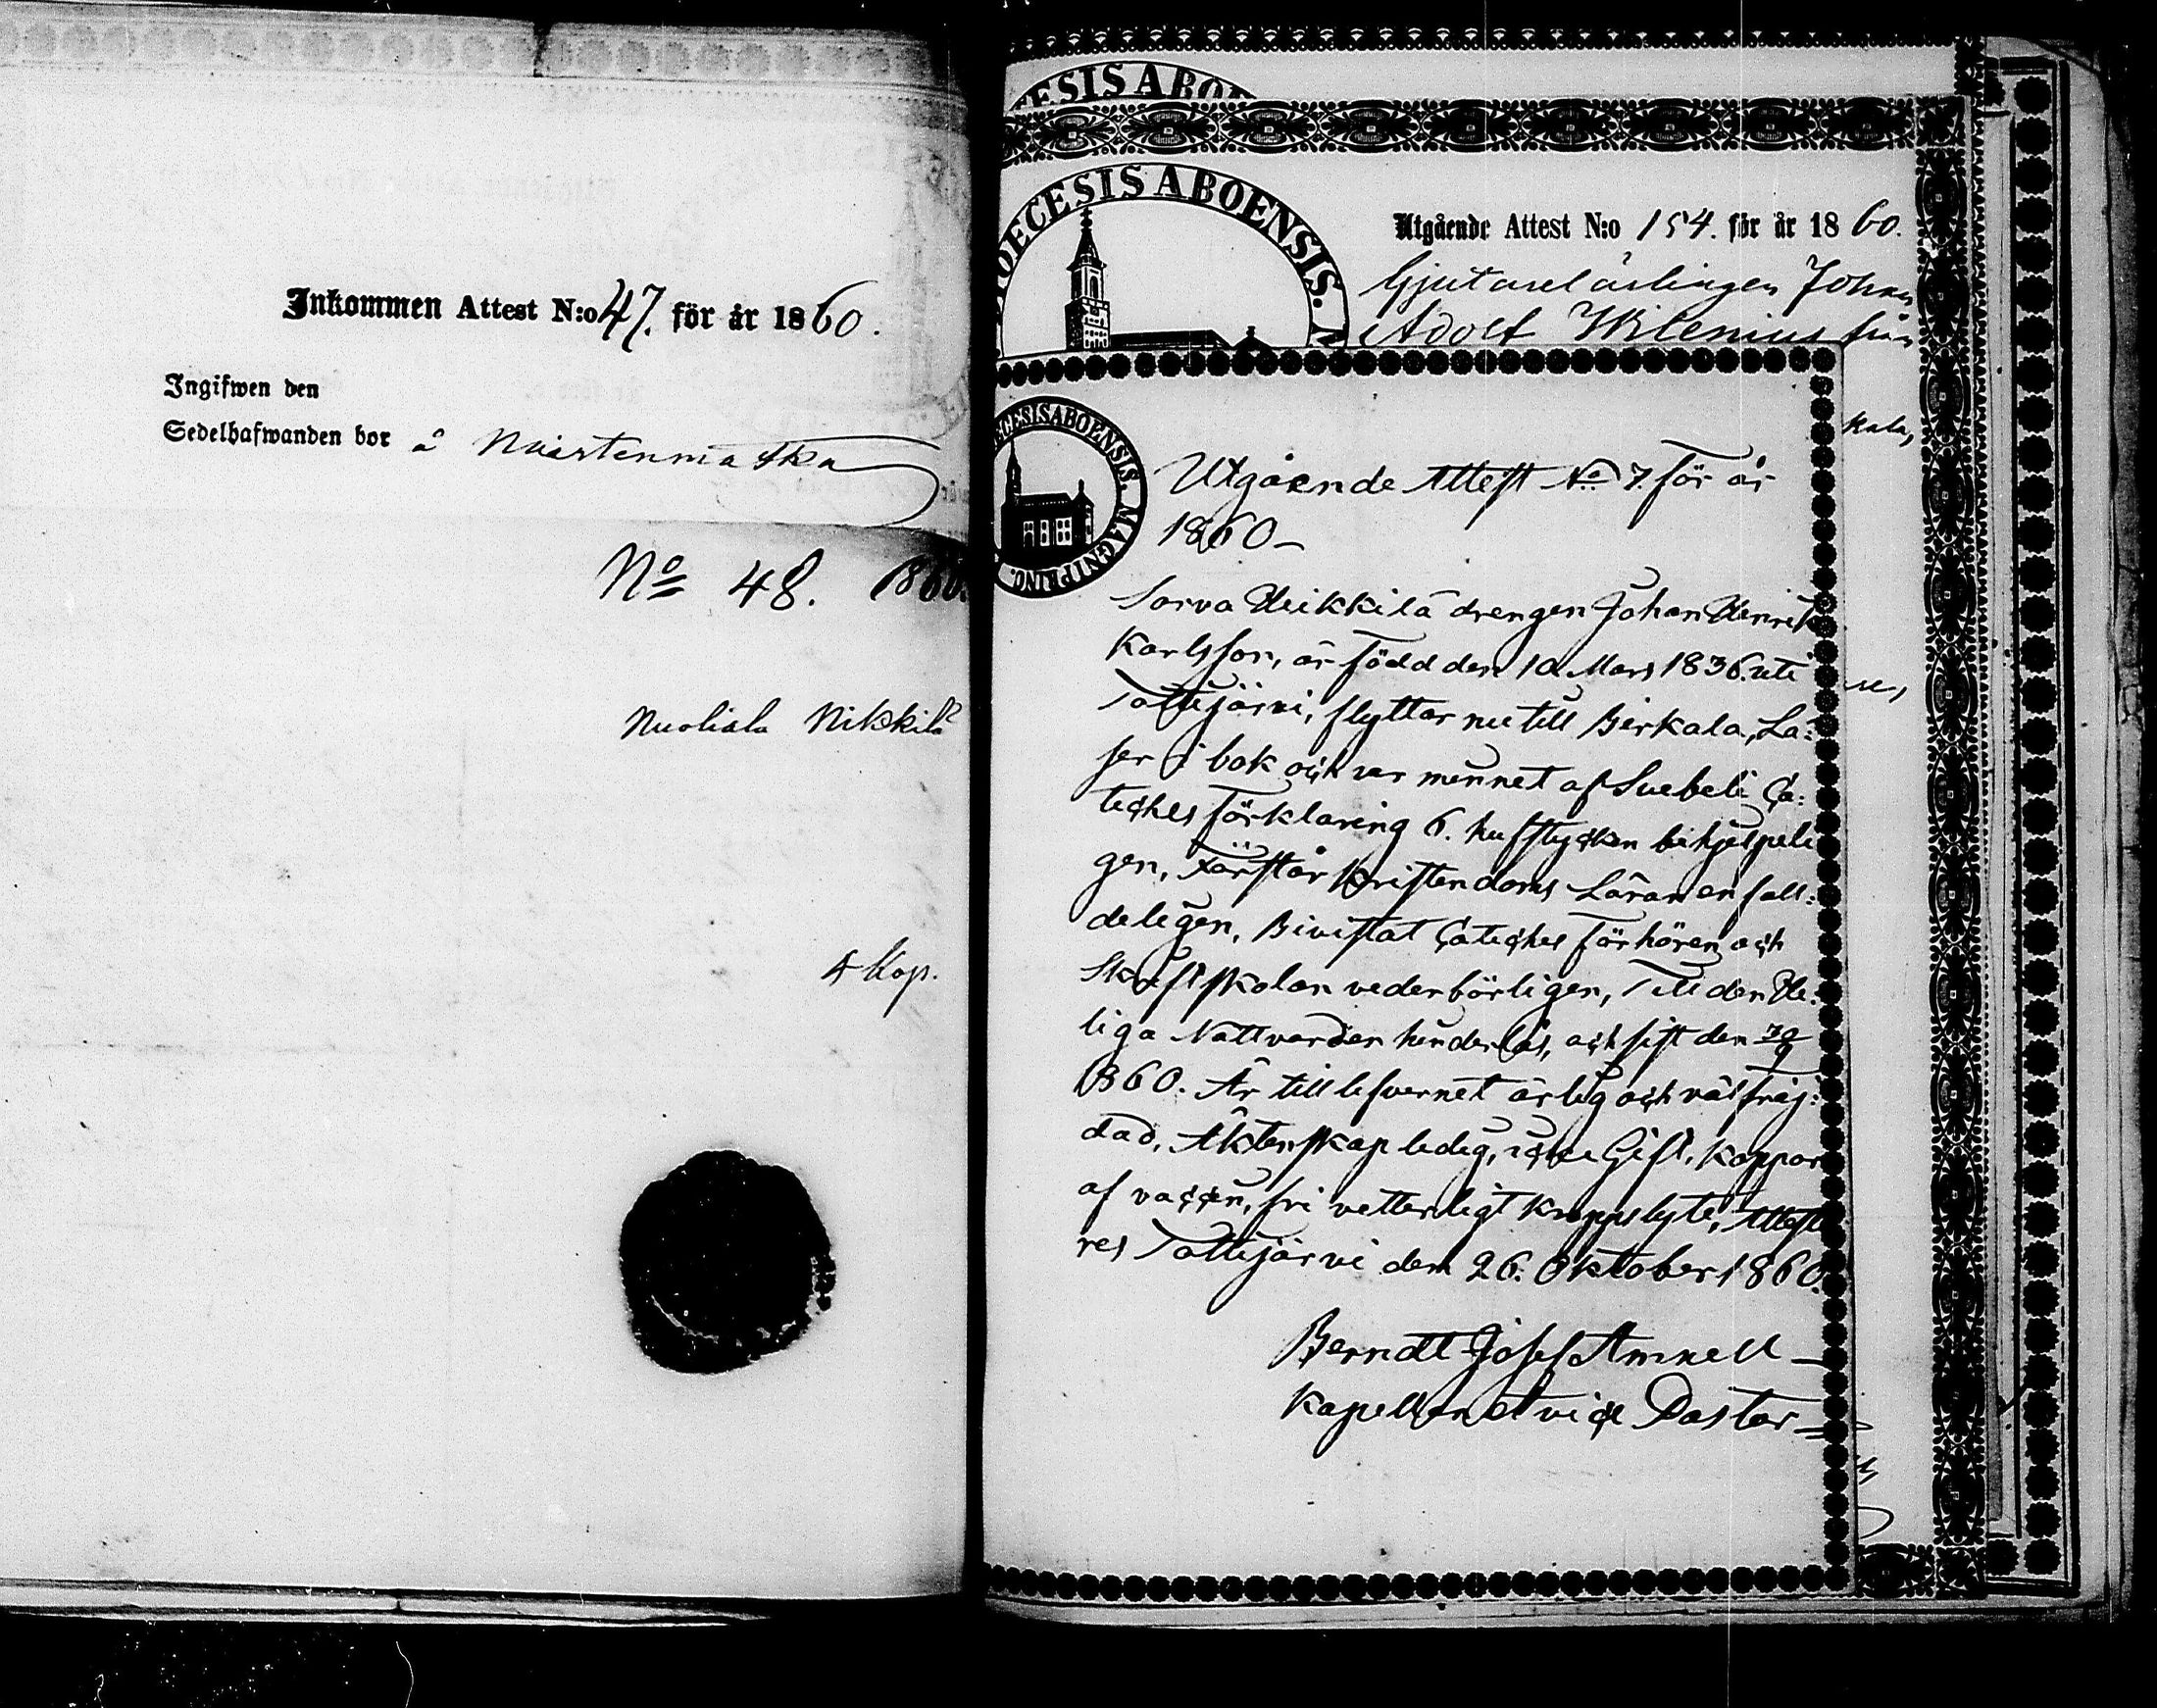 Inkommen Attest N:o 47. för år 1860.
Ingifwen den
Sedelhafwanden bor å
No 48. 1860.
Nuoliala Nikkilä
4 Kop.
ESIS ABO
DIOECESIS ABOENSIS.
Utgående Attest N:o 154. för år 1860.
Gjutarelärlingen Johan
Adolf Wilenius från
kala,
OECESIS ABOENSIS. MAGNI PRINC.
Utgående Attest No 7 för år
1860_
Sorva Heikkilä drengen Johan Henrik
Karlsson, är född den 10 Mars 1836. uti
Tottijärvi, flyttar nu till Birkala, Lä:
ser i bok och ur minnet af Suebeli Ca:
teches förklaring 6. hufstycken behjelpeli
gen, Förstår Kristendoms Läran enfall:
deligen, Bivistat Cateches förhören och
Skriftskolan vederbörligen, Till den He:
liga Nattvarden hinderlös, och sist den
1860. Är till lefvernet ärlig och välfräj:
dad, Äktenskap ledig, icke Gift, Koppor
af vaccin, fri vetterligt kroppslyte, Atteste
res Tottijärvi den 26. Oktober 1860.
Berndt Josef Amnell
Kapellan et vice Pastor